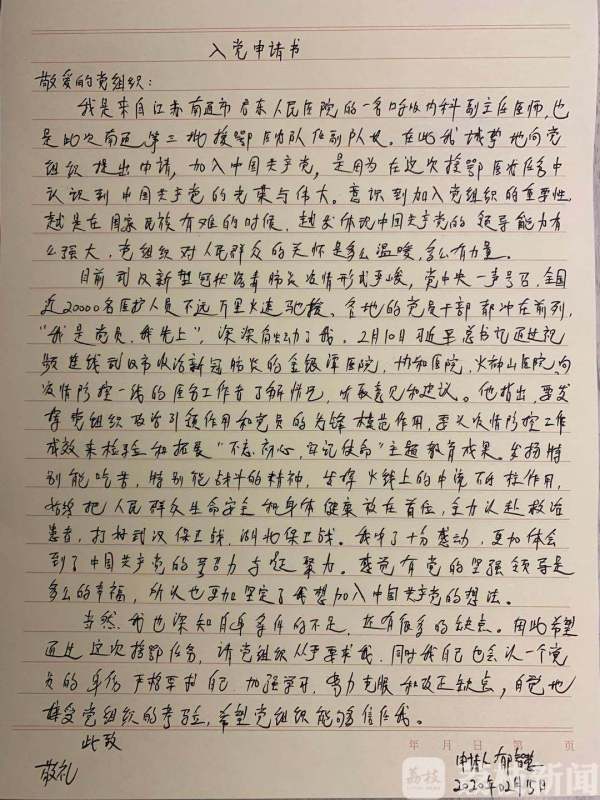 入党申请书
敬爱的党组织：
我是来自江苏南通市启东人民医院的一名呼吸内科副主任医师，也
是此次南通第三批援鄂医疗队任副队长。在此我诚挚地向党
组织提出申请，加入中国共产党，是因为在这次援鄂医疗任务中
认识到中国共产党的光荣与伟大。意识到加入党组织的重要性
越是在国家民族有难的时候，越发体现中国共产党的领导能力有
么强大，党组织对人民群众的关怀是多么温暖，多么有力量。
目前到汉新型冠状病毒肺炎疫情形式严峻，党中央一声号召，全国
近20000名医护人员不远万里火速驰援。各地的党员干部都冲在前列，
“我是党员，我先上”，深深触动了我。2月10日习近平总书记通过视
频连线武汉市收治新冠肺炎的金银潭医院，协和医院，火神山医院，向
疫情防控一线的医务工作者了解情况，听取意见和建议。他指出，要发
挥党组织政治引领作用和党员的先锋模范作用，要以疫情防控工作
成效来检验和拓展“不忘初心，牢记使命”主题教育成果。发扬特
别能吃苦，特别能战斗的精神，发挥火线上的中流砥柱作用，
始终把人民群众生命安全和身体健康放在首位，全力以赴救治
患者，打好武汉保卫战，湖北保卫战。我听了十分感动，更加体会
到了中国共产党的努力与凝聚力。感觉有党的坚强领导是
多么的幸福，所以也更加坚定了我想加入中国共产党的想法。
当然，我也深知自身条件的不足，还有很多的缺点。因此希望
通过这次援鄂任务，请党组织从严要求我，同时我自己也会以一个党
员的身份严格要求自己，加强学习，努力克服和改正缺点，自觉地
接受党组织的考验，希望党组织能够信任我。
此致
敬礼
年 月 日 第 页
申请人：郁智慧
2020年02月15日
荔枝新闻